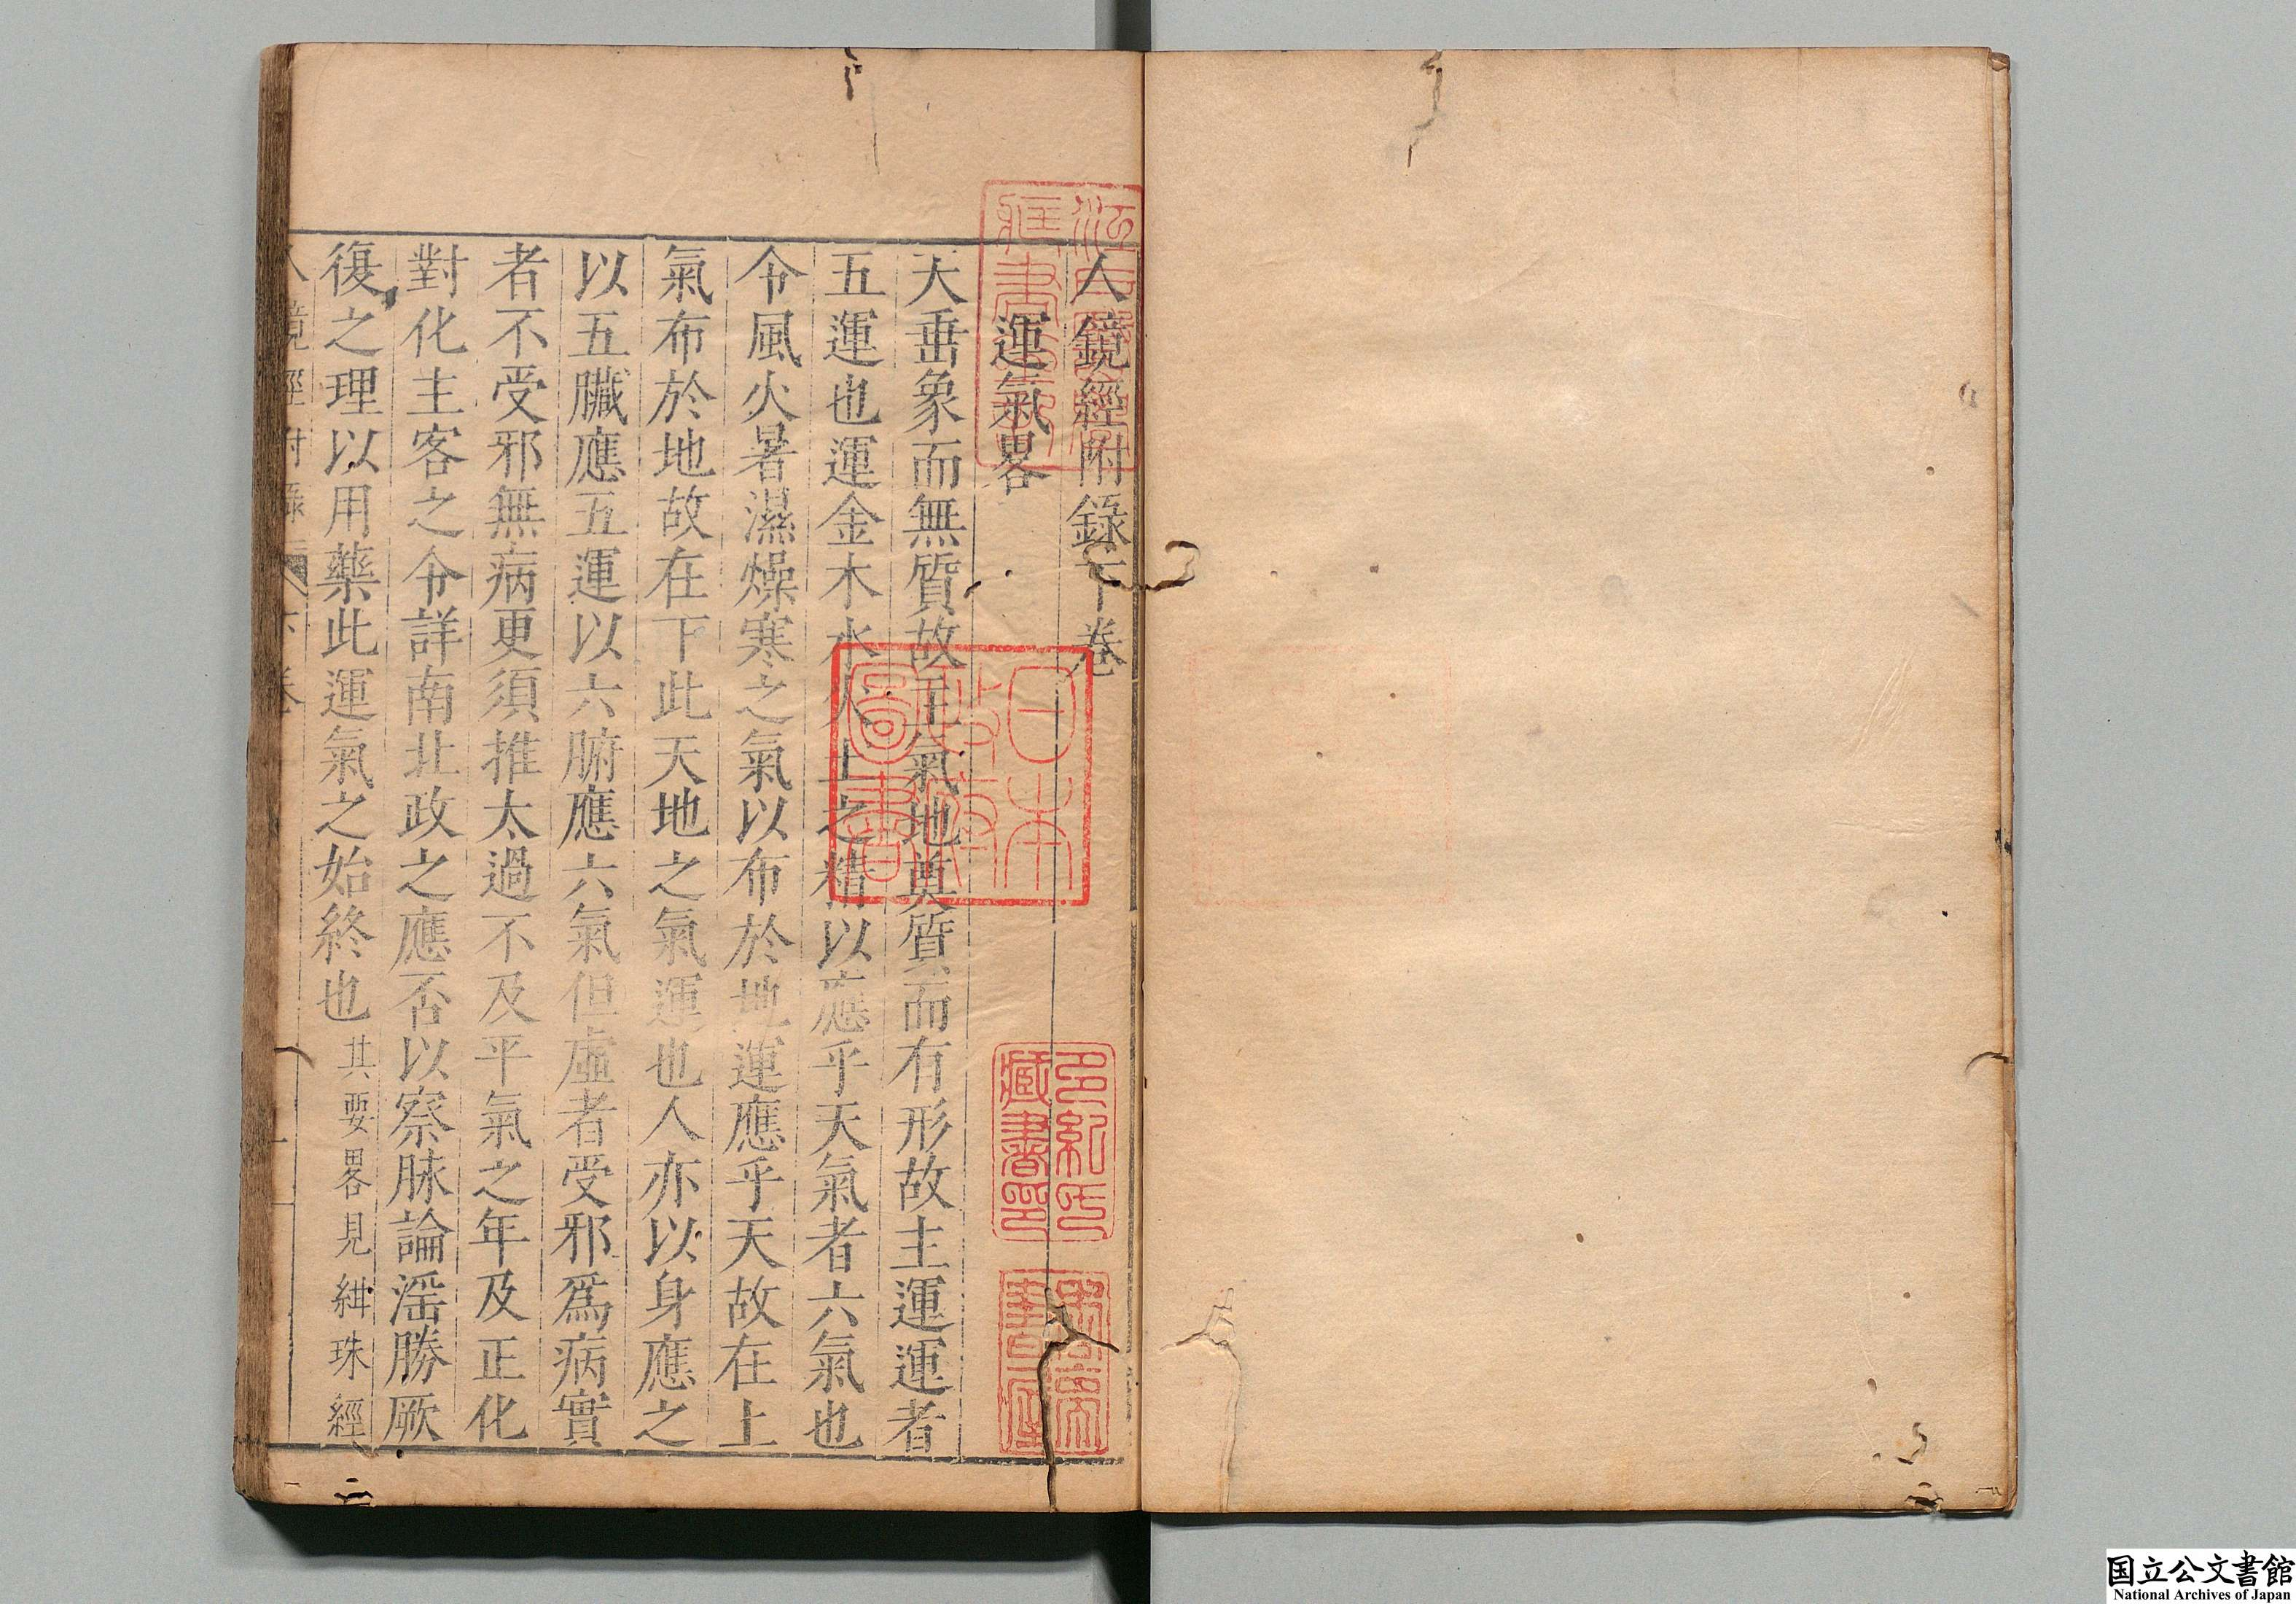 人鏡經附錄下卷
運氣畧
天垂象而無質故主氣地奠質而有形故主運運者
五運也運金木水火土之精以應乎天氣者六氣也
令風火暑濕燥寒之氣以布於地運應乎天故在上
氣布於地故在下此天地之氣運也人亦以身應之
以五臟應五運以六腑應六氣但虛者受邪爲病實
者不受邪無病更須推太過不及平氣之年及正化
對化主客之令詳南北政之應否以察脉論滛勝厥
復之理以用藥此運氣之始終也其要畧見緋珠經
人鏡經附錄 下卷 一
日本政府圖書
多紀氏藏書印
国立公文書館
National Archives of Japan